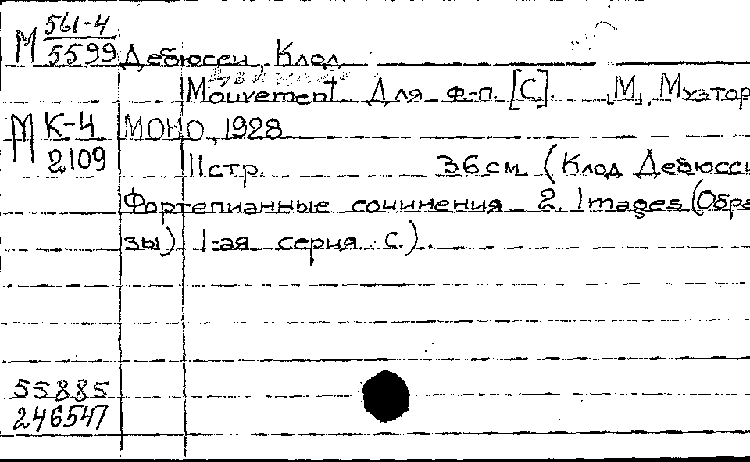 М 561-4
5599 Дебюсси, Клод
Mouvement. Для ф-п. [С]. М, Музтор
М К-4 МОНО, 1928
2109 11стр. 36см. (Клод Дебюсси
Фортепианные сочинения 2. Images (Обра
зы) 1-ая серия с.).
55885
246547